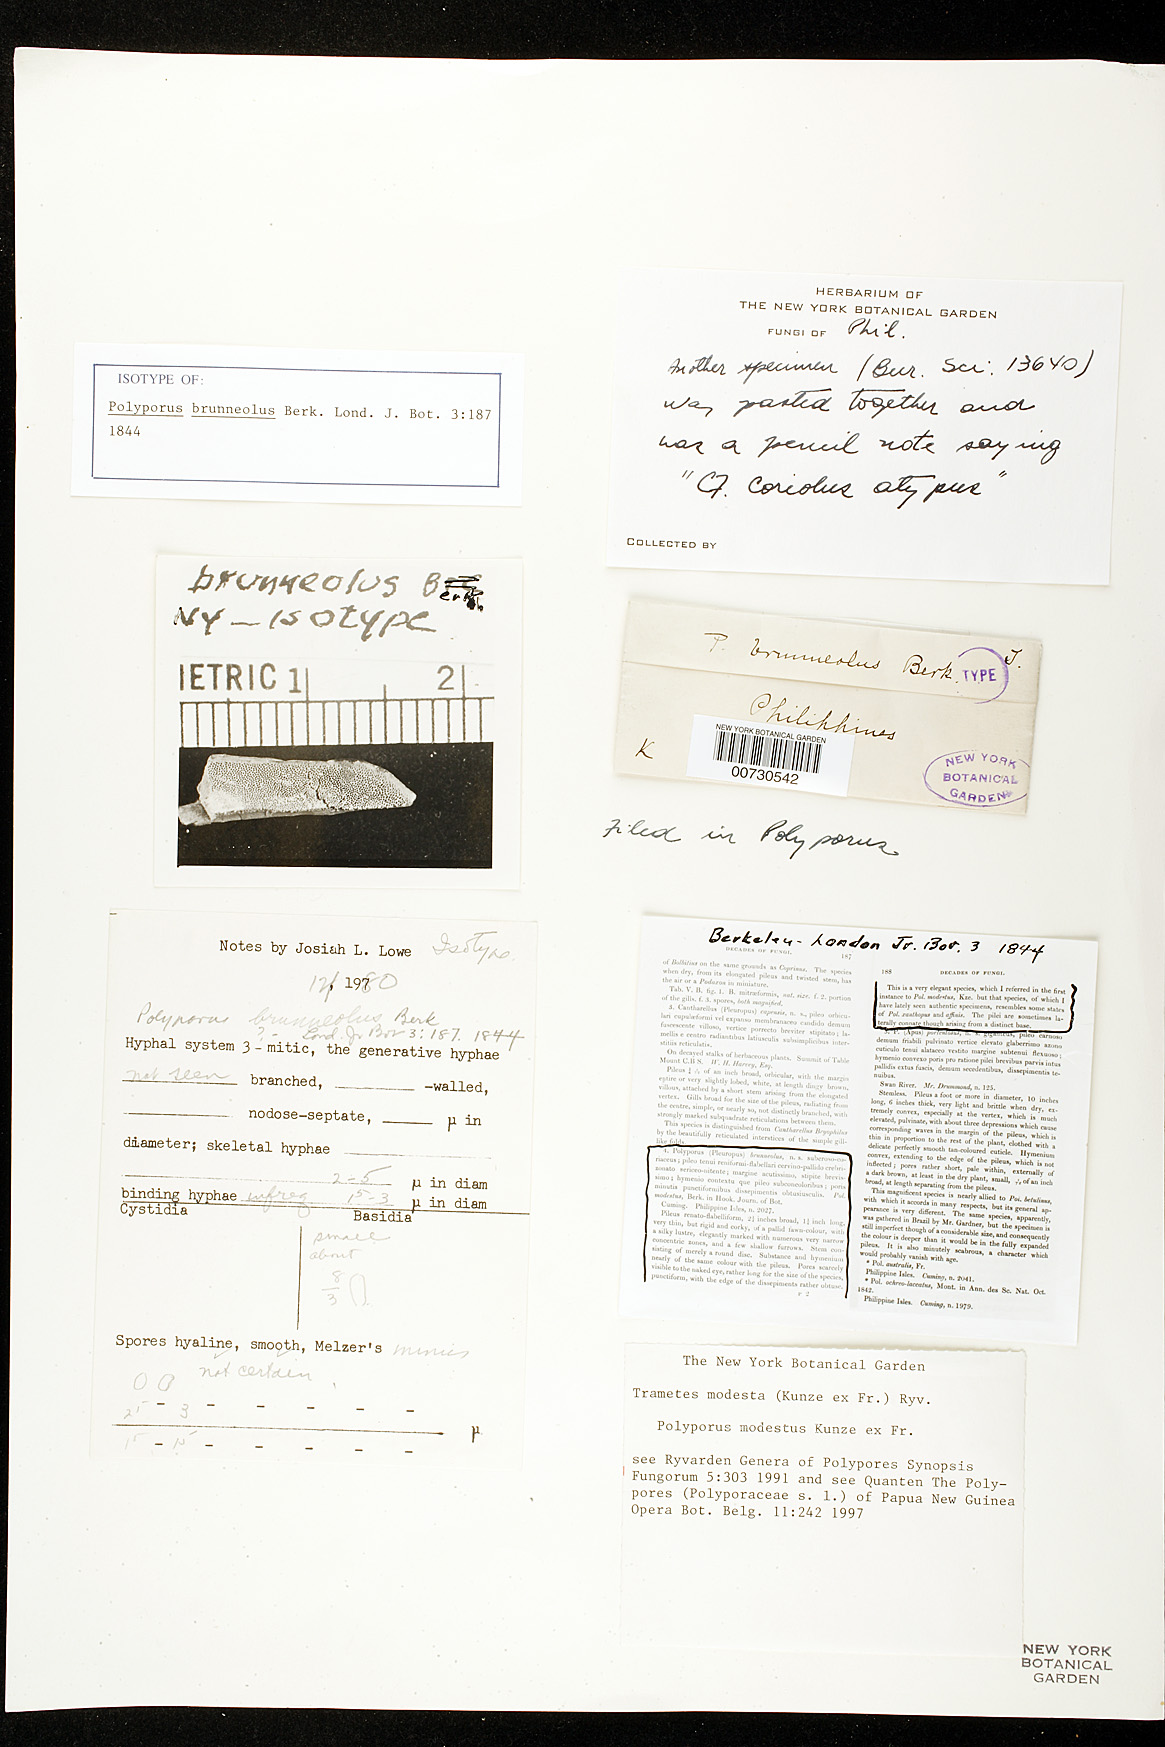 ISOTYPE OF:
Polyporus brunneolus Berk. Lond. J. Bot. 3:187
1844
HERBARIUM OF
THE NEW YORK BOTANICAL GARDEN
FUNGI OF Phil.
Another specimen (Bur. Sci. 13640)
was pasted together and
was a pencil note saying
"Cf. Coriolus atypus"
COLLECTED BY
brunneolus
Berk.
NY-Isotype
IETRIC 1 2
P. brunneolus Berk. TYPE J.
Philippines
K
NEW YORK BOTANICAL GARDEN
00730542
NEW YORK
BOTANICAL
GARDEN
Filed in Polyporus
Notes by Josiah L. Lowe Isotype
12/ 1980
Polyporus brunneolus Berk
Lond. Jr Bot 3:187. 1844
Hyphal system 3-mitic, the generative hyphae
not seen branched, -walled,
nodose-septate, µ in
diameter; skeletal hyphae
2-5 µ in diam
binding hyphae infreq 15-3 µ in diam
Cystidia Basidia
small
about
8
3
Spores hyaline, smooth, Melzer's minus
not certain
- 3 - - - - -
µ
- - - - - -
Berkeley - London Jr. Bot. 3 1844
DECADES OF FUNGI. 187
of Bolbitius on the same grounds as Coprinus. The species
when dry, from its elongated pileus and twisted stem, has
the air or a Podaxon in miniature.
Tab. V. B. fig. 1. B. mitræformis, nat. size. f. 2. portion
of the gills. f. 3. spores, both magnified.
3. Cantharellus (Pleuropus) cyprœis, n. s., pileo orbicu-
lari cupulæformi vel expanso membranaceo candido demum
fuscescente villoso, vertice porrecto breviter stipitato; la-
mellis e centro radiantibus latiusculis subsimplicibus inter-
stitiis reticulatis.
On decayed stalks of herbaceous plants. Summit of Table
Mount C.B S. W. H. Harvey, Esq.
Pileus of an inch broad, orbicular, with the margin
entire or very slightly lobed, white, at length dingy brown,
villous, attached by a short stem arising from the elongated
vertex. Gills broad for the size of the pileus, radiating from
the centre, simple, or nearly so, not distinctly branched, with
strongly marked subquadrate reticulations between them.
This species is distinguished from Cantharellus Bryophilus
by the beautifully reticulated interstices of the simple gill-
like folds.
4. Polyporus (Pleuropus) brunneolus, n. s. suberoso-co-
riaceus; pileo tenui reniformi-flabellari cervino-pallido crebri-
zonato sericeo-nitente; margine acutissimo, stipite brevis-
simo; hymenio contextu que pileo subconcoloribus; poris
minutis punctiformibus dissepimentis obtusiusculis. Pol.
modestus, Berk. in Hook. Journ. of Bot.
Cuming. Philippine Isles, n. 2027.
Pileus renato-flabelliform, 2½ inches broad, 1½ inch long,
very thin, but rigid and corky, of a pallid fawn-colour, with
a silky lustre, elegantly marked with numerous very narrow
concentric zones, and a few shallow furrows. Stem con-
sisting of merely a round disc. Substance and hymenium
nearly of the same colour with the pileus. Pores scarcely
visible to the naked eye, rather long for the size of the species,
punctiform, with the edge of the dissepiments rather obtuse.
P 2
188 DECADES OF FUNGI.
This is a very elegant species, which I referred in the first
instance to Pol. modestus, Kze. but that species, of which I
have lately seen authentic specimens, resembles some states
of Pol. xanthopus and affinis. The pilei are sometimes la-
terally connate though arising from a distinct base.
5. P. (Apus) portentosus, n. s. giganteus, pileo carnoso
demum friabili pulvinato vertice elevato glaberrimo azono
cuticulo tenui alutaceo vestito margine subtenui flexuoso;
hymenio convexo poris pro ratione pilei brevibus parvis intus
pallidis extus fuscis, demum secedentibus, dissepimentis te-
nuibus.
Swan River. Mr. Drummond, n. 125.
Stemless. Pileus a foot or more in diameter, 10 inches
long, 6 inches thick, very light and brittle when dry, ex-
tremely convex, especially at the vertex, which is much
elevated, pulvinate, with about three depressions which cause
corresponding waves in the margin of the pileus, which is
thin in proportion to the rest of the plant, clothed with a
delicate perfectly smooth tan-coloured cuticle. Hymenium
convex, extending to the edge of the pileus, which is not
inflected; pores rather short, pale within, externally of
a dark brown, at least in the dry plant, small, of an inch
broad, at length separating from the pileus.
This magnificent species is nearly allied to Pol. betulinus,
with which it accords in many respects, but its general ap-
pearance is very different. The same species, apparently,
was gathered in Brazil by Mr. Gardner, but the specimen is
still imperfect though of a considerable size, and consequently
the colour is deeper than it would be in the fully expanded
pileus. It is also minutely scabrous, a character which
would probably vanish with age.
* Pol. australis, Fr.
Philippine Isles. Cuming, n. 2041.
* Pol. ochreo-laceatus, Mont. in Ann. des Sc. Nat. Oct.
1842.
Philippine Isles. Cuming, n. 1979.
The New York Botanical Garden
Trametes modesta (Kunze ex Fr.) Ryv.
Polyporus modestus Kunze ex Fr.
see Ryvarden Genera of Polypores Synopsis
Fungorum 5:303 1991 and see Quanten The Poly-
pores (Polyporaceae s. l.) of Papua New Guinea
Opera Bot. Belg. 11:242 1997
NEW YORK
BOTANICAL
GARDEN